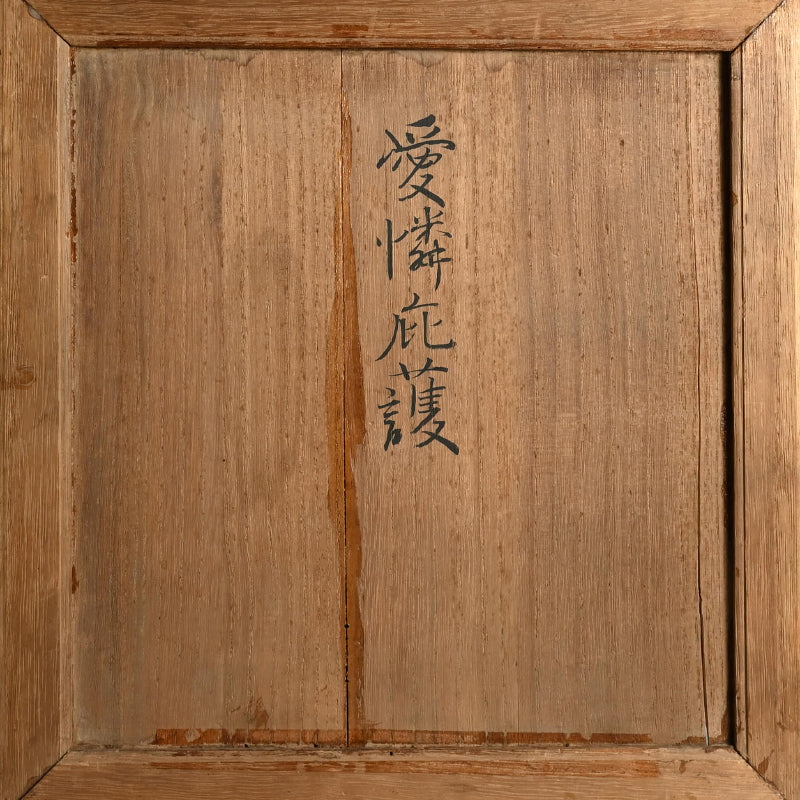 愛憐庇護